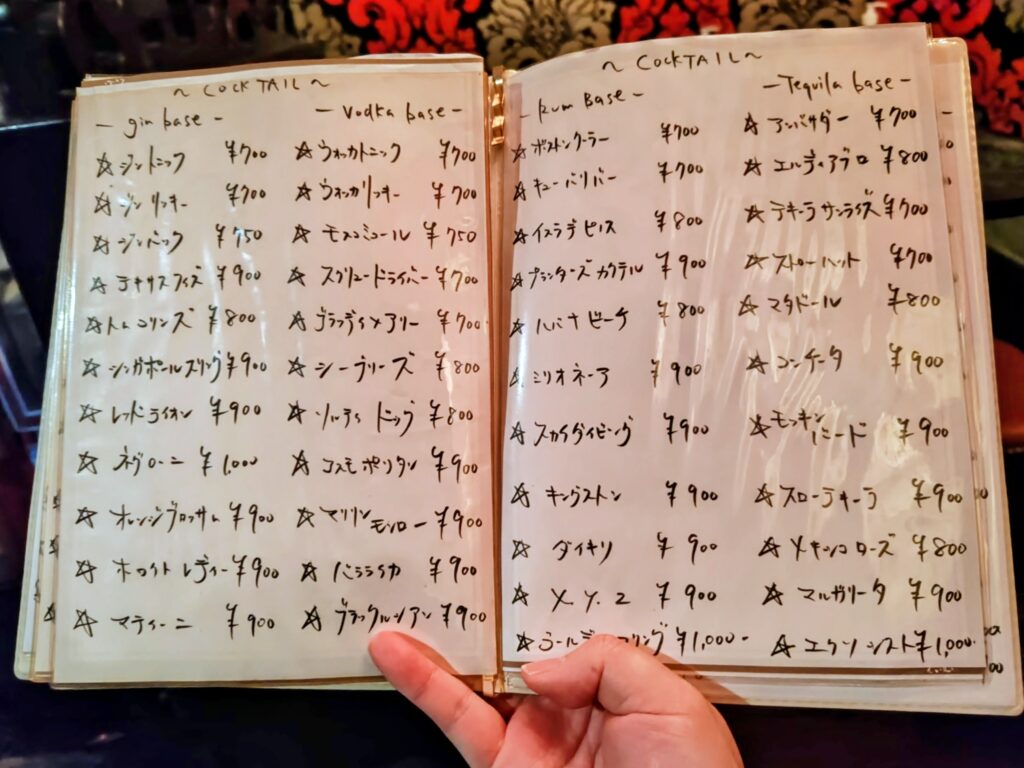 ~ COCKTAIL ~
- gin base -
☆ ジントニック ¥700
☆ ジンリッキー ¥700
☆ ジンバック ¥750
☆ テキサスフィズ ¥900
☆ トムコリンズ ¥800
☆ シンガポールスリング ¥900
☆ レッドライオン ¥900
☆ ネグローニ ¥1,000
☆ オレンジブロッサム ¥900
☆ ホワイトレディー ¥900
☆ マティーニ ¥900
- Vodka base -
☆ ウォッカトニック ¥700
☆ ウォッカリッキー ¥700
☆ モスコミュール ¥750
☆ スクリュードライバー ¥700
☆ ブラッディメアリー ¥700
☆ シーブリーズ ¥800
☆ ソルティドッグ ¥800
☆ コスモポリタン ¥900
☆ マリリンモンロー ¥900
☆ バラライカ ¥900
☆ ブラックルシアン ¥900
~ COCKTAIL ~
- Rum Base -
☆ ボストンクーラー ¥700
☆ キューバリバー ¥700
☆ イスラデピノス ¥800
☆ プランターズカクテル ¥900
☆ ハバナビーチ ¥800
☆ ミリオネーア ¥900
☆ スカイダイビング ¥900
☆ キングストン ¥900
☆ ダイキリ ¥900
☆ X.Y.Z ¥900
☆ ¥1,000-
- Tequila base -
☆ アンバサダー ¥700
☆ エルディアブロ ¥800
☆ テキーラサンライズ ¥700
☆ ストローハット ¥700
☆ マタドール ¥800
☆ コンチータ ¥900
☆ モッキンバード ¥900
☆ スローテキーラ ¥900
☆ メキシコローズ ¥800
☆ マルガリータ ¥900
☆ エクソシスト ¥1,000-